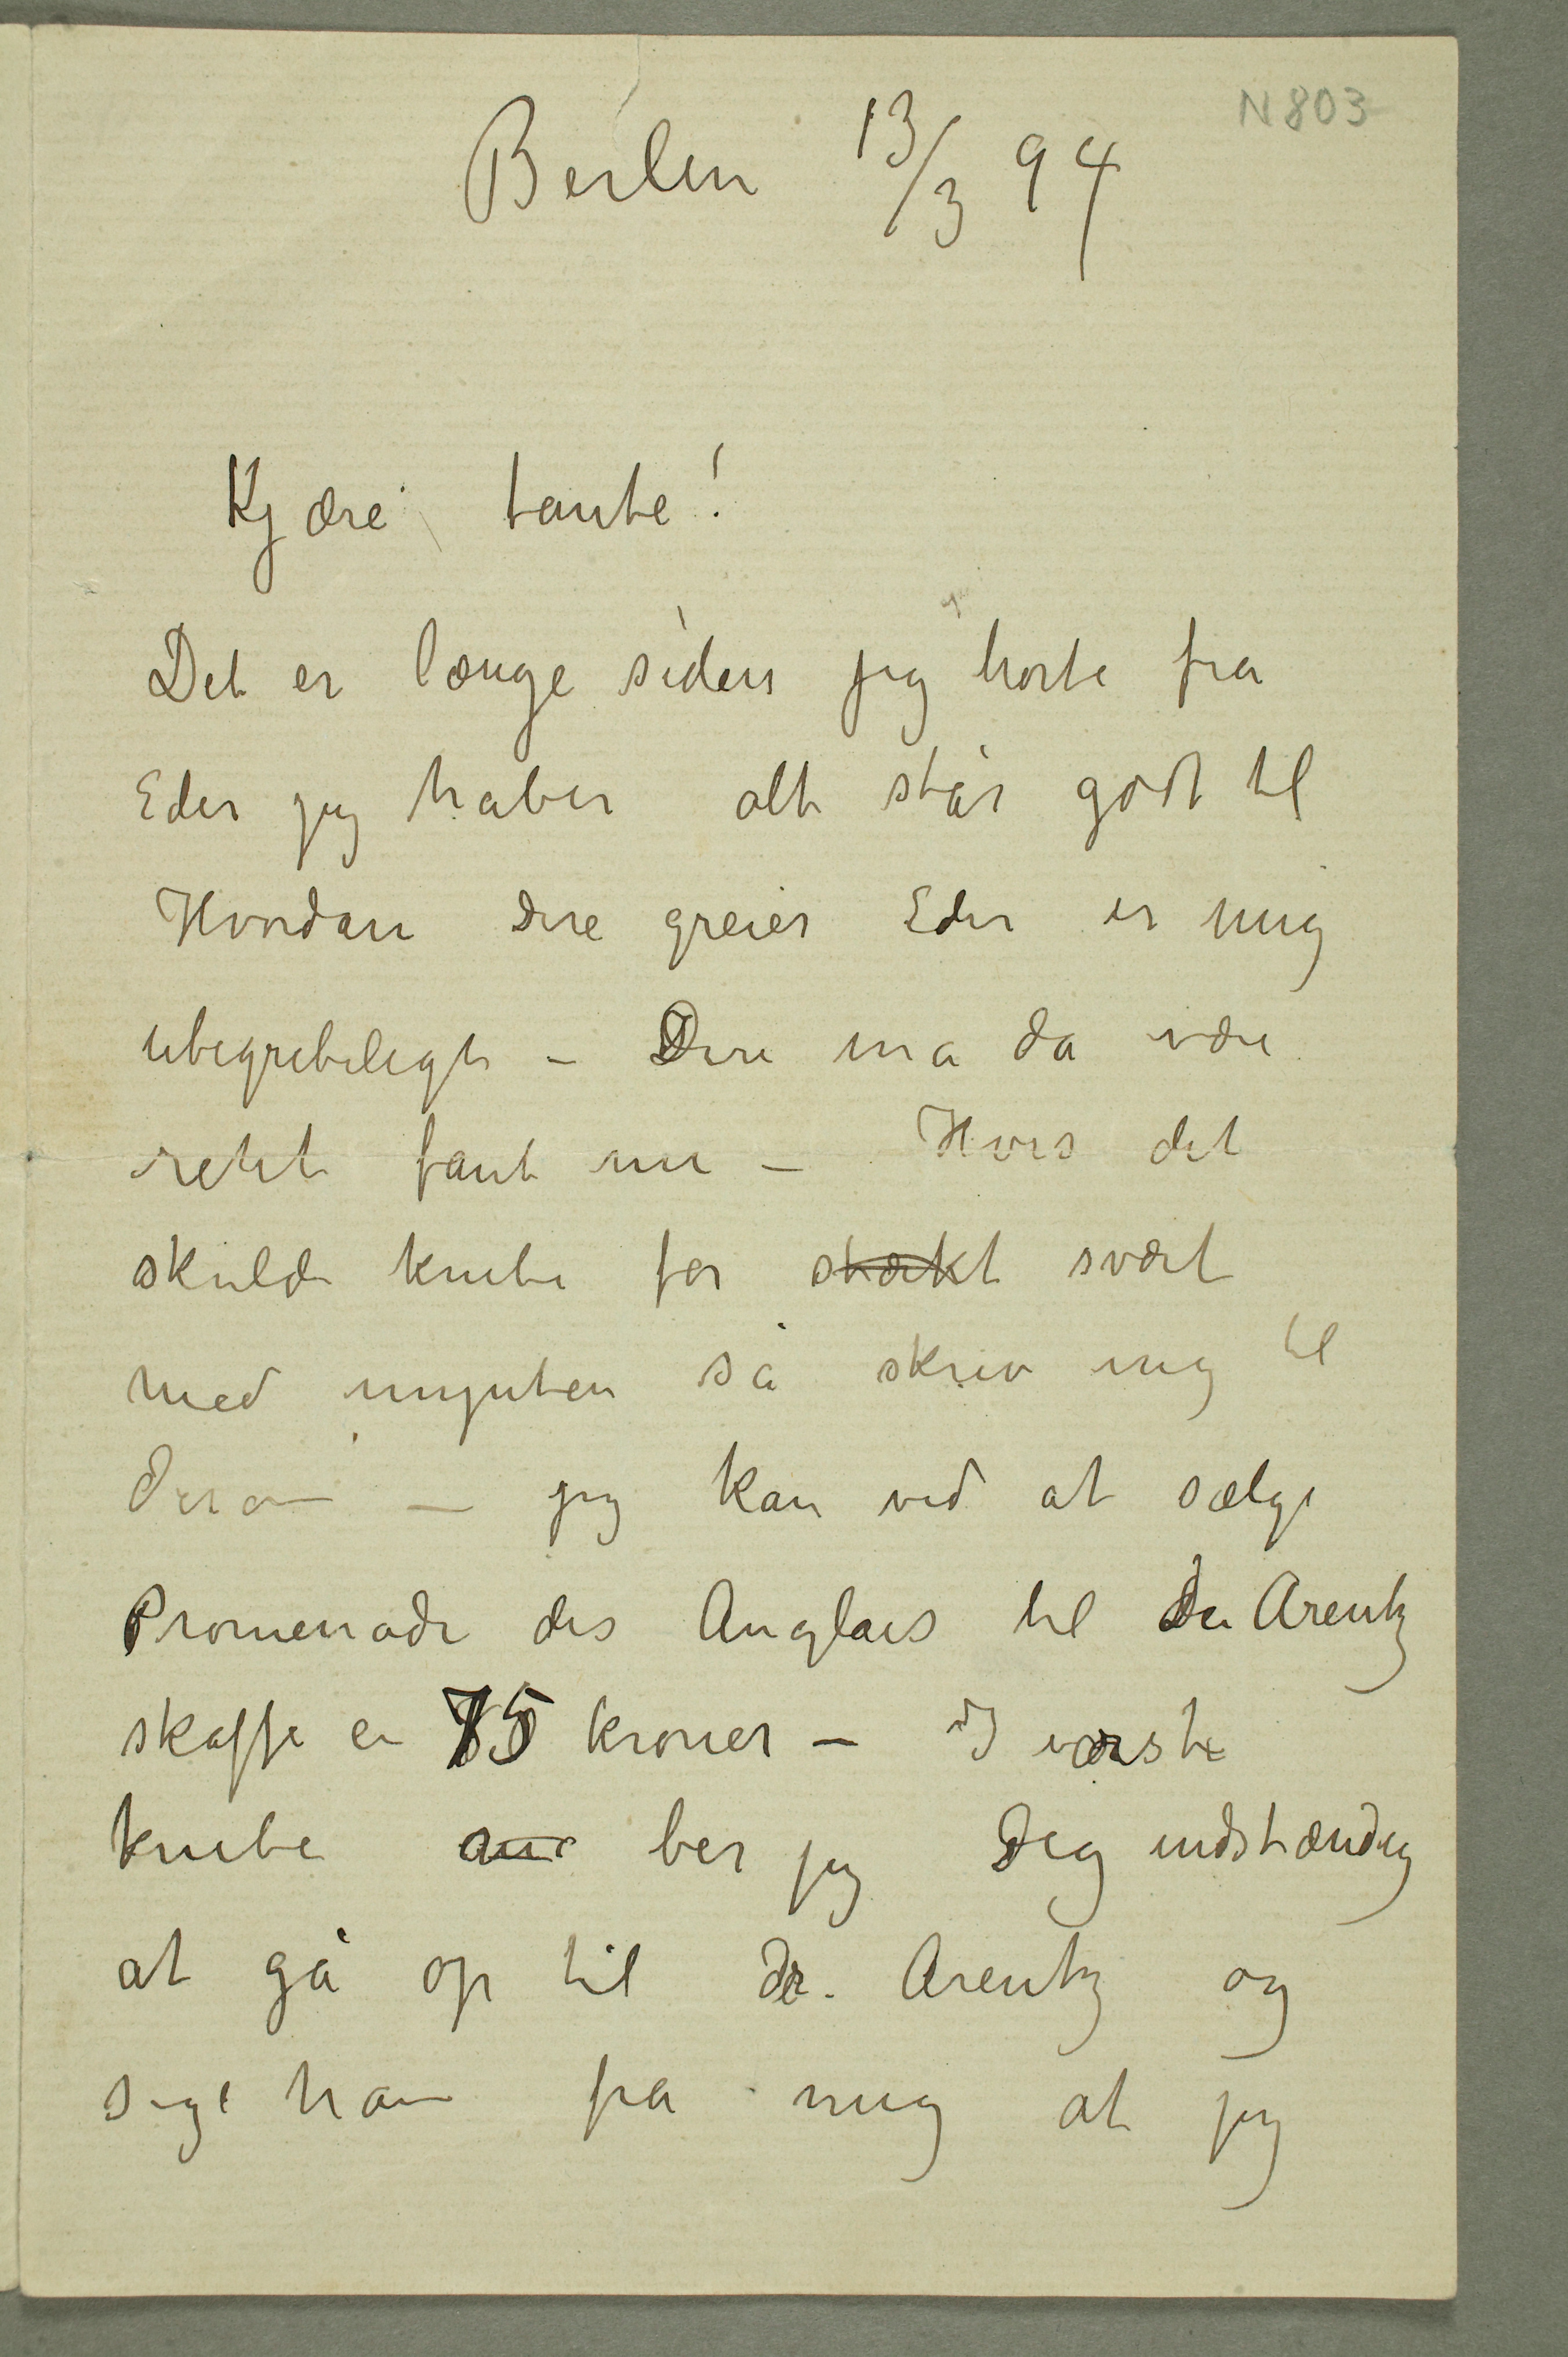 N 803
Berlin 13/3 94
Kjære tante!
Det er længe siden jeg hørte fra
Eder jeg haber alt står godt til
Hvordan Dere greier Eder er mig
ubegribeligt – Dere må da være
rehkt fant nu – Hvis det
skulde knibe for stærkt svært
med mynten så skriv mig til
derom – jeg kan ved at sælge
Promenade des Anglais til Dr Arentz
skaffe en 75 kroner – I værste
knibe ber jeg Dig indstændig
at gå op til dr. Arentz og
sige ham fra mig at jeg